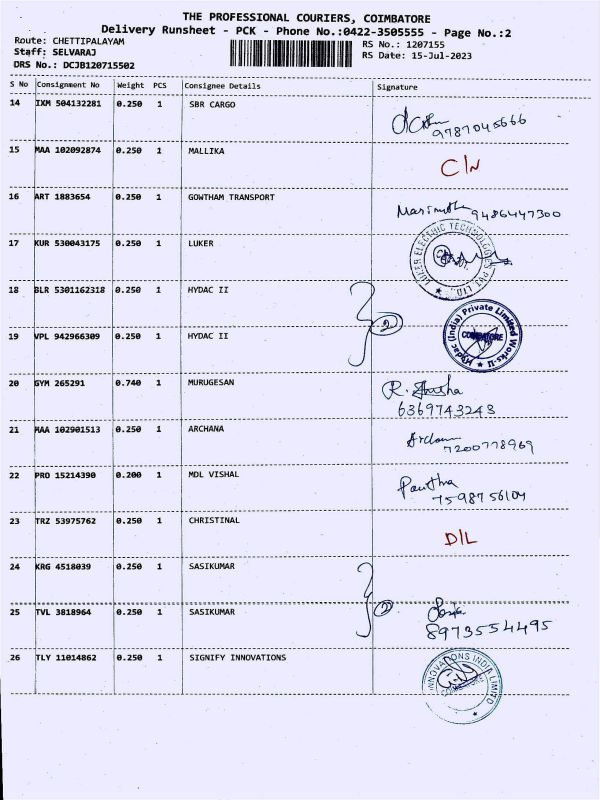 THE PROFESSIONAL COURIERS, COIMBATORE
Delivery Runsheet - PCK - Phone No.:0422-3505555 - Page No.:2
Route: CHETTIPALAYAM RS No.: 1207155
Staff: SELVARAJ RS Date: 15-Jul-2023
DRS No.: DCJB120715502
S No Consignment No Weight PCS Consignee Details Signature
14 IXM 504132281 0.250 1 SBR CARGO
9787045666
15 MAA 102092874 0.250 1 MALLIKA
C/N
16 ART 1883654 0.250 1 GOWTHAM TRANSPORT
Marimuthu 9486447300
17 KUR 530043175 0.250 1 LUKER
LUKER ELECTRIC TECHNOLOGIES PVT LTD.
18 BLR 5301162318 0.250 1 HYDAC II
2
Hydac (India) Private Limited Works-II
COIMBATORE
19 VPL 942966309 0.250 1 HYDAC II
20 GYM 265291 0.740 1 MURUGESAN
R.
6369743248
21 MAA 102901513 0.250 1 ARCHANA
7200778969
22 PRO 15214390 0.200 1 MDL VISHAL
Pavithra
7598756104
23 TRZ 53975762 0.250 1 CHRISTINAL
D/L
24 KRG 4518039 0.250 1 SASIKUMAR
2
25 TVL 3818964 0.250 1 SASIKUMAR
8973554495
26 TLY 11014862 0.250 1 SIGNIFY INNOVATIONS
INNOVATIONS INDIA LIMITED